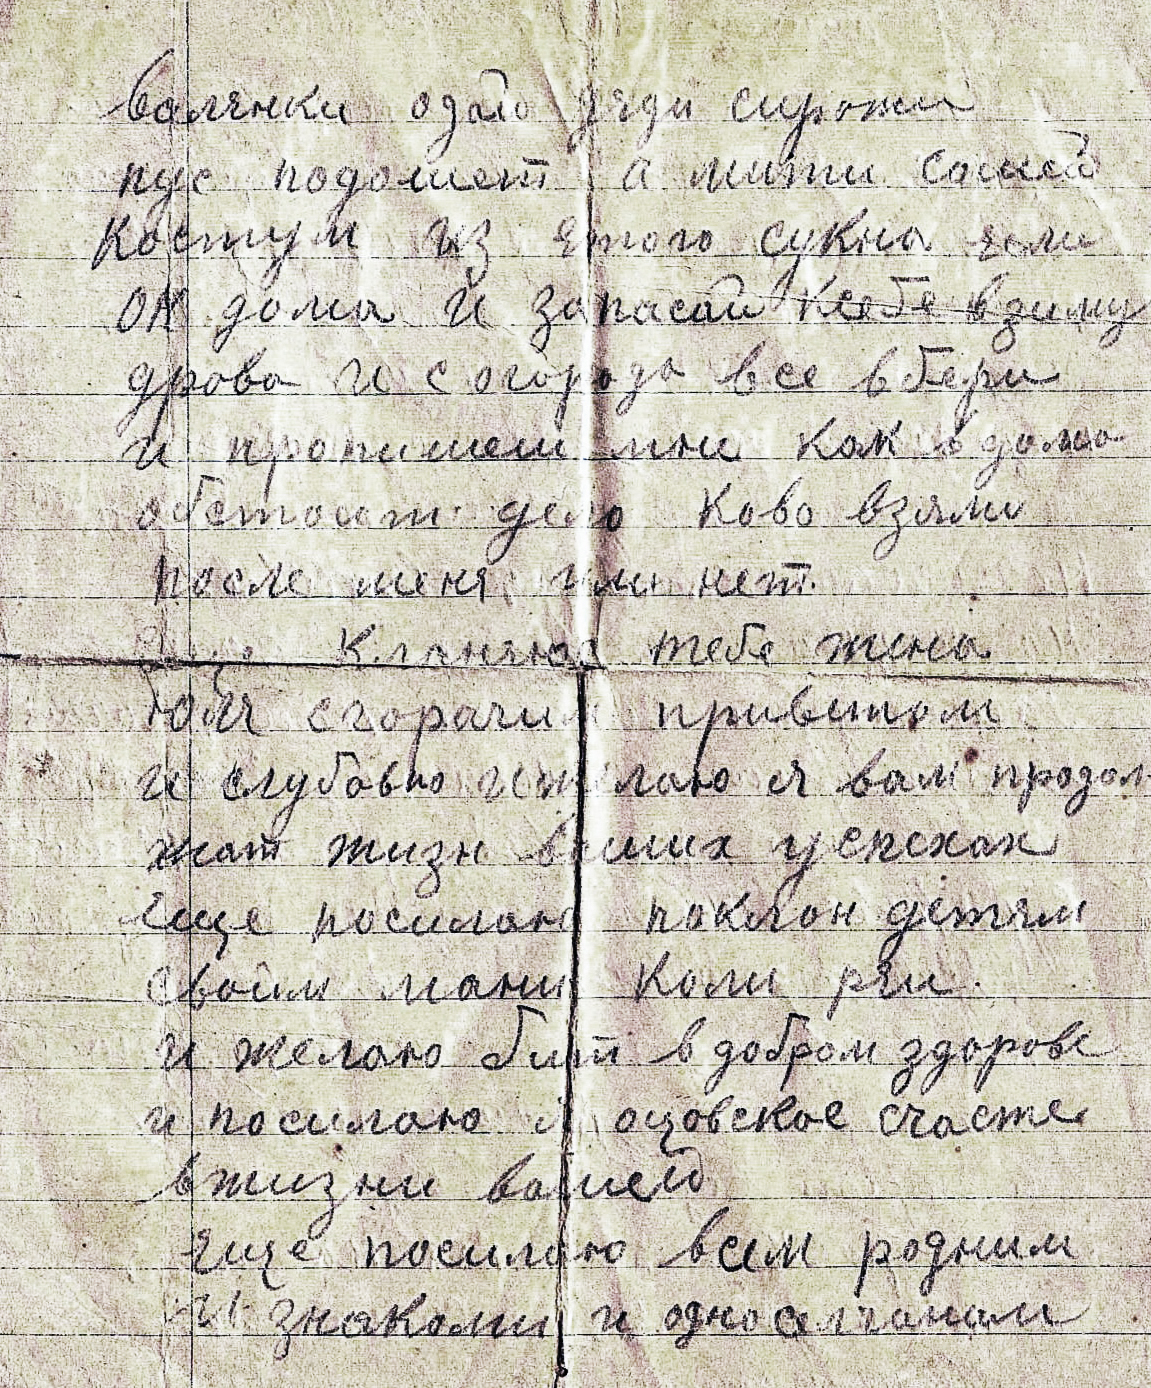 валянки одаю дяди сирожи
пус подошет а мити сошей
костум из етого сукна если
он дома и запасай ксебе взиму
дрова и согорода все вбери
и пропишеш мне как вдома
обстоит дело ково взяли
после меня или нет.
Еще кланяюс тебе жена
юля сгорачим привитом
и слубовю ижелаю я вам продол
жат жизн ваших успехах
еще посилаю поклон детям
своим мани коли
и желаю бит вдобром здорове
и посилаю я оцовское счасте
вжизни вашей
еще посилаю всем родним
и знакоми и односелчанам